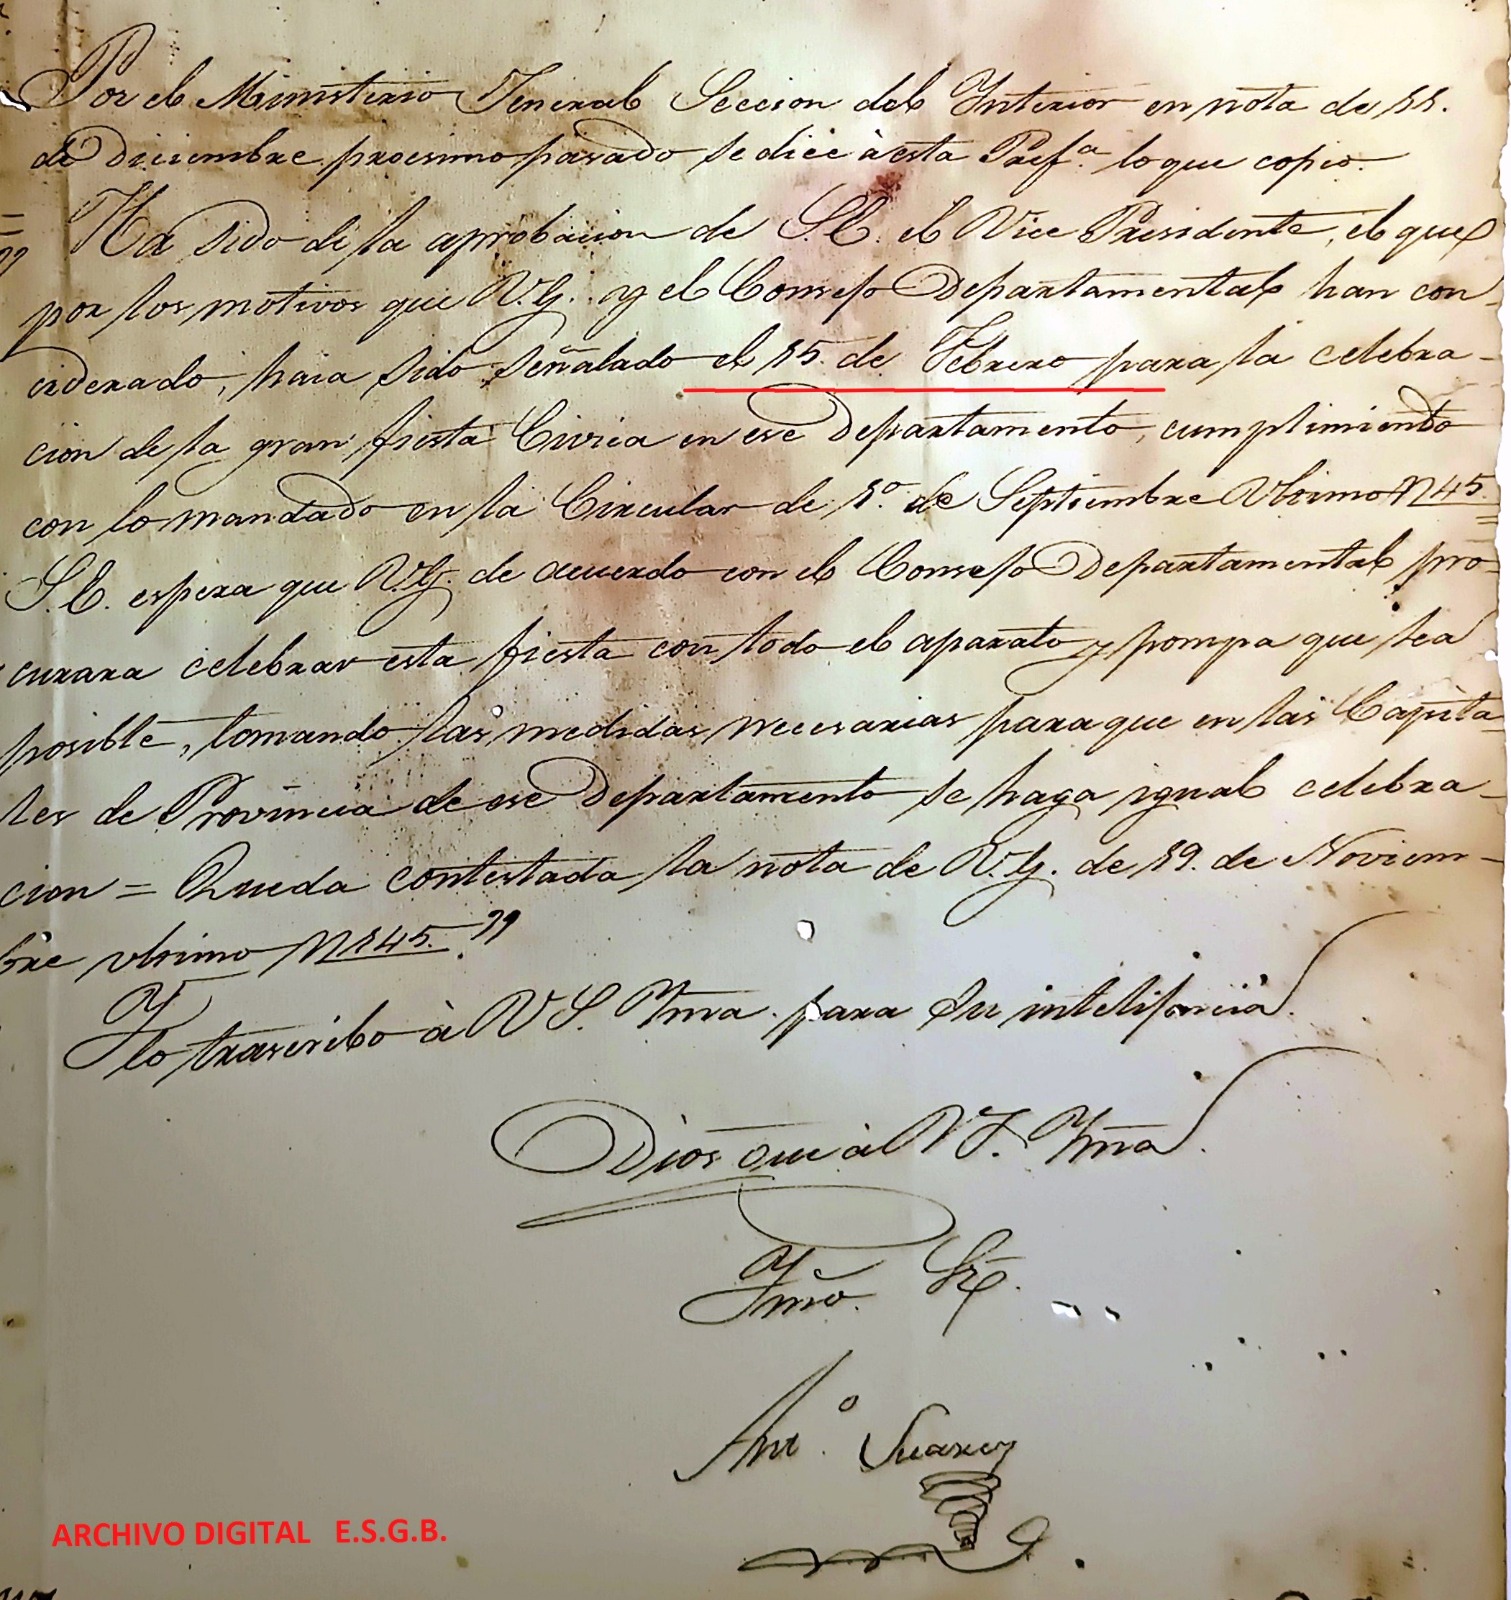 Por el Ministerio Jeneral Seccion del Ynterior en nota de 11.
de Diciembre procsimo pasado se dice à esta Prefª. lo que copio.
"Ha sido de la aprobacion de S.E. el Vice Presidente, el que
por los motivos que V.G. y el Consejo Departamental han con-
ciderado, haia sido señalado el 15. de Febrero para la celebra-
cion de la gran fiesta Civica en ese Departamento, cumplimiendo
con lo mandado en la Circular de 1º. de Septiembre Ultimo N 45.
S.E. espera que V.G. de acuerdo con el Consejo Departamental pro-
curara celebrar esta fiesta con todo el aparato y pompa que sea
posible, tomando las medidas necesarias para que en las Capita-
les de Provincia de ese Departamento se haga igual celebra-
cion = Queda contestada la nota de V.G. de 19. de Noviem-
bre ultimo N 145."
Y lo trascribo à V S. Yma. para su intelijencia.
Dios gue à V S. Yma.
Ymõ. Sr.
Antº. Suarez
ARCHIVO DIGITAL E.S.G.B.